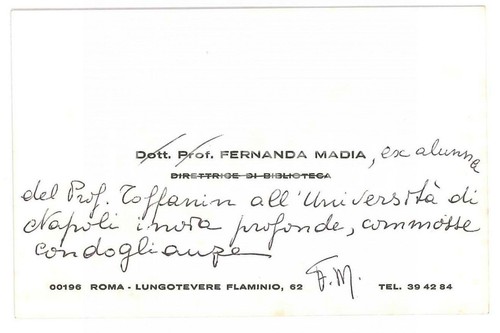 Dott. Prof. FERNANDA MADIA, ex alunna
DIRETTRICE DI BIBLIOTECA
del Prof. Toffanin all'Università di
Napoli invia profonde, commosse
condoglianze
F.M.
00196 ROMA - LUNGOTEVERE FLAMINIO, 62 TEL. 39 42 84